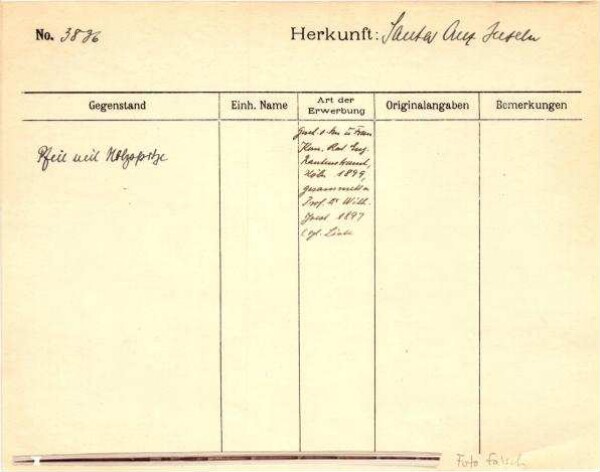 No. 3836
Herkunft: Santa Cruz Inseln
Gegenstand
Einh. Name
Art der
Erwerbung
Originalangaben
Bemerkungen
Pfeil mit Holzspitze
Gesch. v. Frau
Kom. Rat Eug.
Rautenstrauch,
Köln 1899,
gesammelt v.
Prof. Dr Wilh.
Joest 1897
Foto falsch